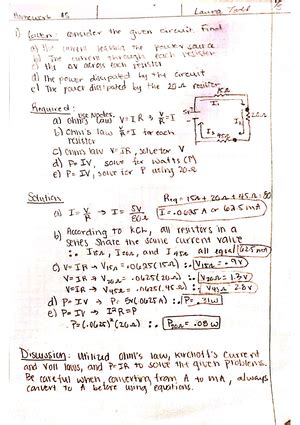 Homework #5
Laura Todd
1) Given: Consider the given circuit. Find
a) the current leaving the power source
b) The current through each resistor
c) the ΔV across each resistor
d) The power dissipated by the circuit
e) The power dissipated by the 20-Ω resistor
Required:
use Nodes:
a) Ohm's law V=IR → V/R = I
b) Ohm's law V/R = I for each
resistor
c) Ohm's law V=IR, solve for V
d) P=IV, solve for watts (M
e) P=IV, solve for P using 20Ω
15Ω
5V
20Ω
45Ω
Solution
Req = 15Ω + 20Ω + 45Ω = 80
a) I = V/R → I = 5V/80Ω
I = .0625 A or 62.5 mA
b) According to KCL, all resistors in a
series share the same current value
∴ I15Ω, I20Ω, and I45Ω all equal 62.5 mA
c) V=IR → V15Ω = .0625(15Ω) ∴ V15Ω = .9V
V=IR → V20Ω = .0625(20Ω) ∴ V20Ω = 1.3V
V=IR → V45Ω = .0625(45Ω) ∴ V45Ω = 2.8V
d) P=IV → P = 5V(.0625A) ∴ P = .31W
e) P=IV → I²R=P
P=(.0625)²(20Ω) ∴ P20Ω = .08W
Discussion: Utilized Ohm's law, Kirchoff's Current
and Volt laws, and P=IR to solve the given problems.
Be careful when converting from A to mA, always
convert to A before using equations.